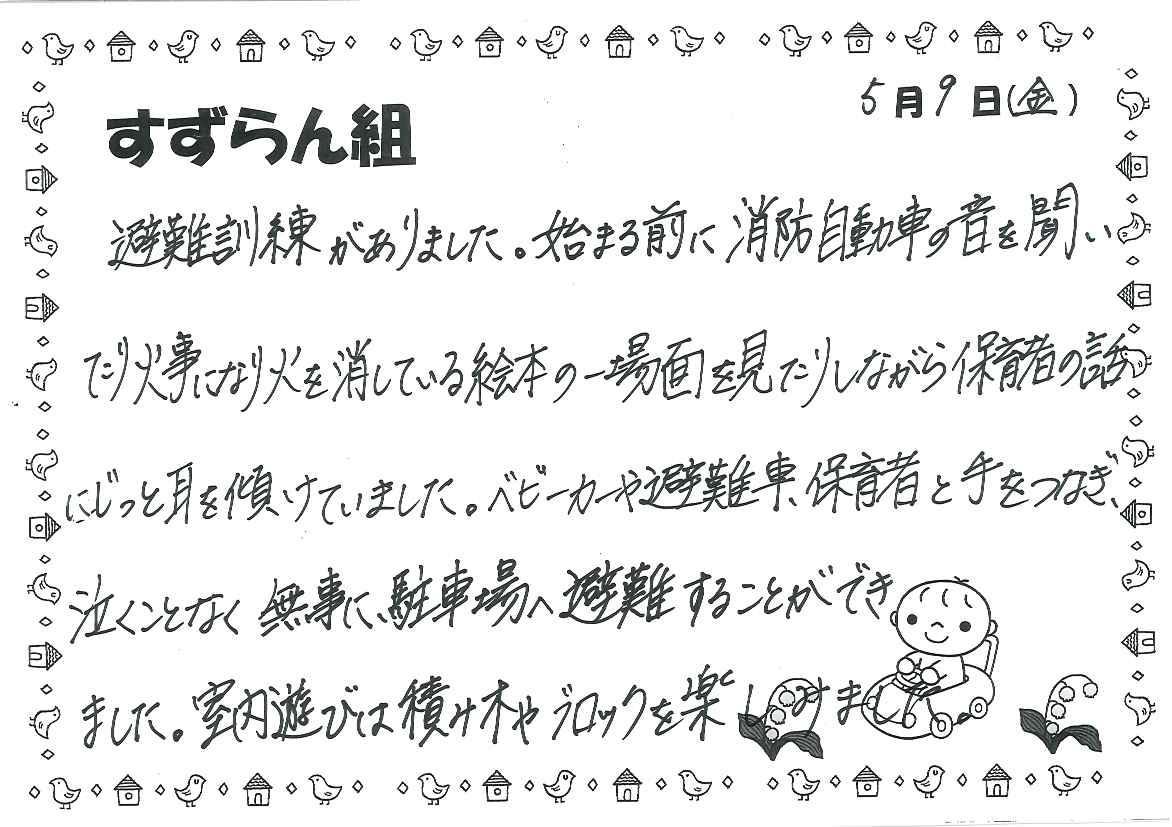 5月9日(金)
すずらん組
避難訓練がありました。始まる前に消防自動車の音を聞い
たり火事になり火を消している絵本の一場面を見たりしながら保育者の話
にじっと耳を傾けていました。ベビーカーや避難車、保育者と手をつなぎ、
泣くことなく無事に、駐車場へ避難することができ
ました。室内遊びは積み木やブロックを楽しみました